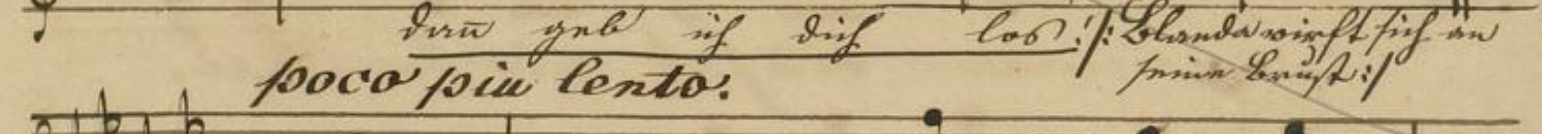 dan̄ geb ich dich los! /: Blanda wirft sich an
seine Brust :/
poco piu lento.